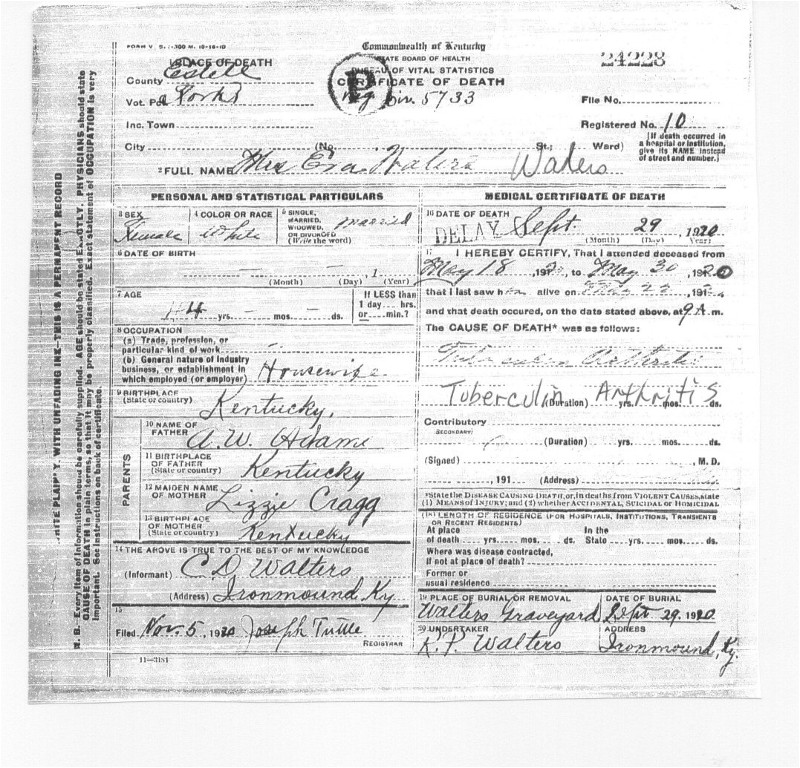 FORM V. S. 1-300 M. 10-16-10
Commonwealth of Kentucky
24228
1 PLACE OF DEATH
STATE BOARD OF HEALTH
County Estell
BUREAU OF VITAL STATISTICS
P
CERTIFICATE OF DEATH
Vot. Pct. Forks
Reg Div. 5733
File No.
Inc. Town
Registered No. 10
City (No. St.; Ward)
(If death occurred in
a hospital or institution,
give its NAME instead
of street and number.)
2 FULL NAME Mrs Eva Walters Walters
PERSONAL AND STATISTICAL PARTICULARS
3 SEX Female
4 COLOR OR RACE White
5 SINGLE,
MARRIED,
WIDOWED,
OR DIVORCED
(Write the word)
Married
6 DATE OF BIRTH
1
(Month) (Day) (Year)
7 AGE
44 yrs. mos. ds.
If LESS than
1 day hrs.
or min.?
8 OCCUPATION
(a) Trade, profession, or
particular kind of work
(b) General nature of industry
business, or establishment in
which employed (or employer) Housewife
9 BIRTHPLACE
(State or country) Kentucky.
PARENTS
10 NAME OF
FATHER A.W. Adams
11 BIRTHPLACE
OF FATHER
(State or country) Kentucky
12 MAIDEN NAME
OF MOTHER Lizzie Cragg
13 BIRTHPLACE
OF MOTHER
(State or country) Kentucky
14 THE ABOVE IS TRUE TO THE BEST OF MY KNOWLEDGE
(Informant) C.D. Walters
(Address) Ironmound Ky
15
Filed Nov. 5, 1920 Joseph Tuttle
REGISTRAR
11-3184
MEDICAL CERTIFICATE OF DEATH
16 DATE OF DEATH
DELAY Sept. 29, 1920
(Month) (Day) Year)
17 I HEREBY CERTIFY, That I attended deceased from
May 18, 1920, to May 30, 1920
that I last saw her alive on 192
and that death occured, on the date stated above, at 9 A. m.
The CAUSE OF DEATH* was as follows:
Tuberculin Arthritis
Tuberculin Arthritis
(Duration) yrs. mos. ds.
Contributory
SECONDARY)
(Duration) yrs. mos. ds.
(Signed) , M. D.
, 191 (Address)
*State the DISEASE CAUSING DEATH, or, in deaths from VIOLENT CAUSES, state
(1) MEANS OF INJURY; and (2) whether ACCIDENTAL, SUICIDAL or HOMICIDAL
18 LENGTH OF RESIDENCE (FOR HOSPITALS, INSTITUTIONS, TRANSIENTS
OR RECENT RESIDENTS)
At place In the
of death yrs. mos. ds. State yrs. mos. ds.
Where was disease contracted,
if not at place of death?
Former or
usual residence
19 PLACE OF BURIAL OR REMOVAL DATE OF BURIAL
Walters Graveyard Sept 29, 1920
20 UNDERTAKER ADDRESS
K. P. Walters Ironmound, Ky.
WRITE PLAINLY, WITH UNFADING INK—THIS IS A PERMANENT RECORD
N. B. Every item of information should be carefully supplied. AGE should be stated EXACTLY. PHYSICIANS should state
CAUSE OF DEATH in plain terms, so that it may be properly classified. Exact statement of OCCUPATION is very
important. See instructions on back of certificate.